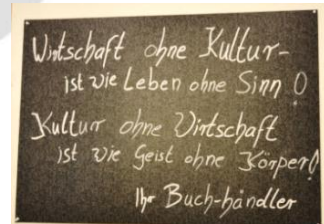 Wirtschaft ohne Kultur-
ist wie Leben ohne Sinn!
Kultur ohne Wirtschaft
ist wie Geist ohne Körper!
Ihr Buch-händler